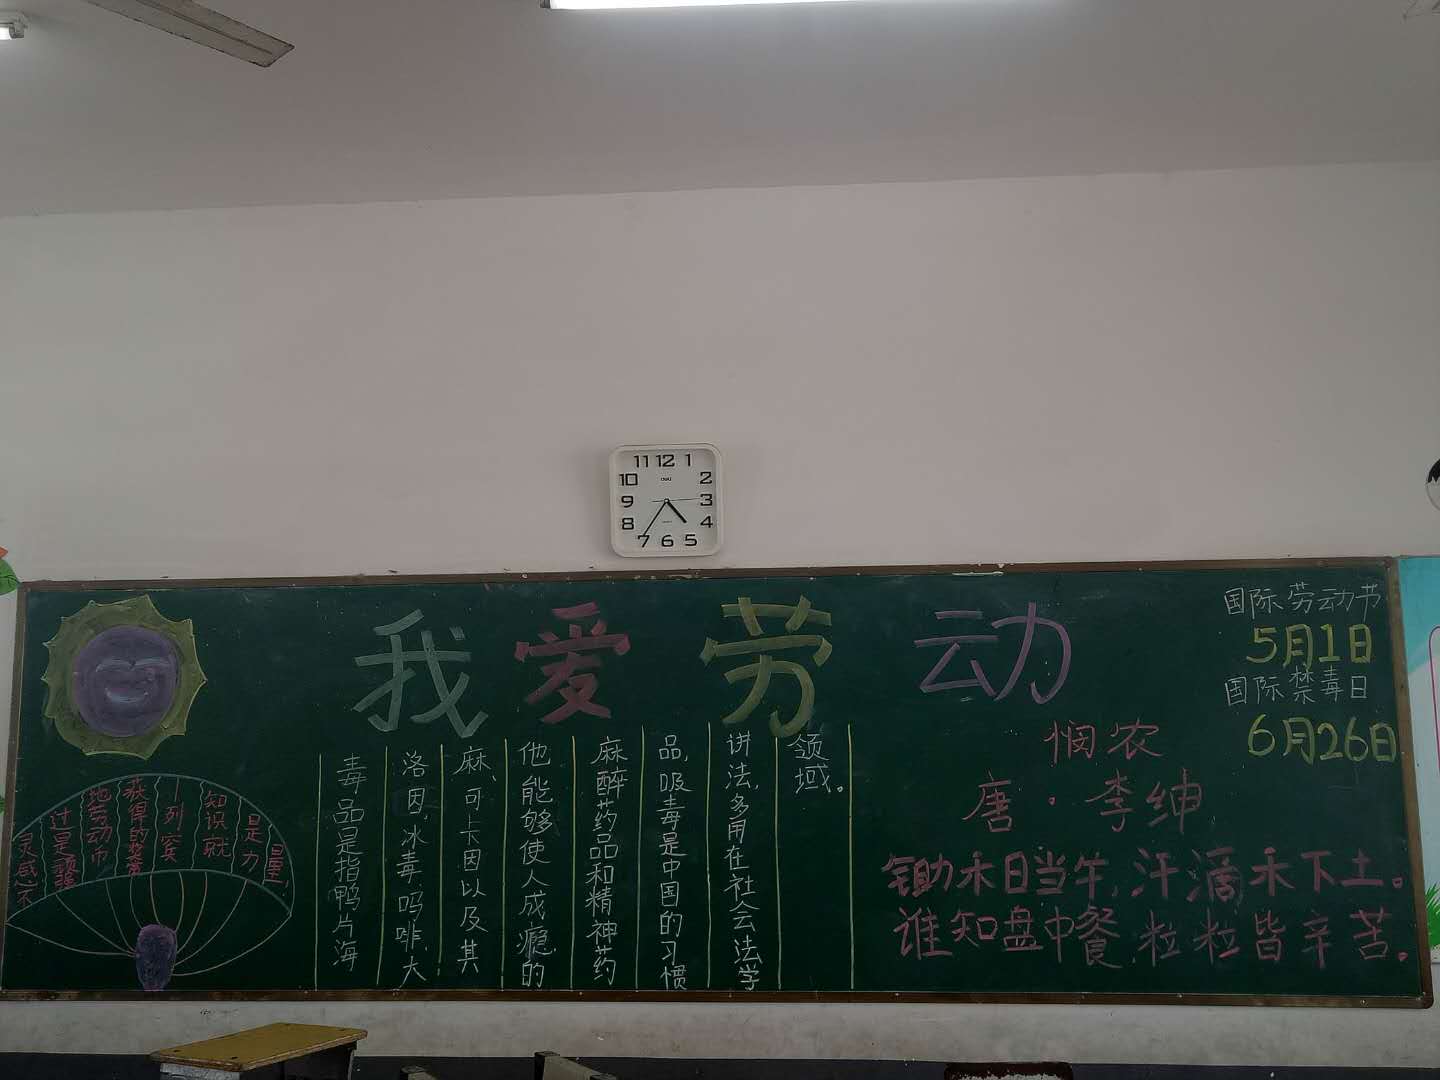 11 12 1
10 2
9 3
8 4
7 6 5
deli
我爱劳动
国际劳动节
5月1日
国际禁毒日
6月26日
毒品是指鸭片海
洛因,冰毒,吗啡,大
麻、可卡因以及其
他能够使人成瘾的
麻醉药品和精神药
品,吸毒是中国的习惯
讲法,多用在社会法学
领域。
悯农
唐·李绅
锄禾日当午,汗滴禾下土。
谁知盘中餐,粒粒皆辛苦。
知识就
是力
量,
灵感,不
过是顽强
地劳动而
获得的奖赏